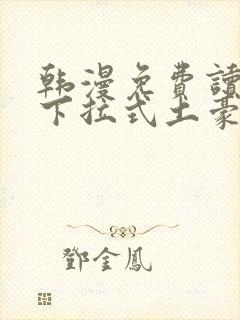 韩漫免費讀
下拉式土豪
鄧金鳳